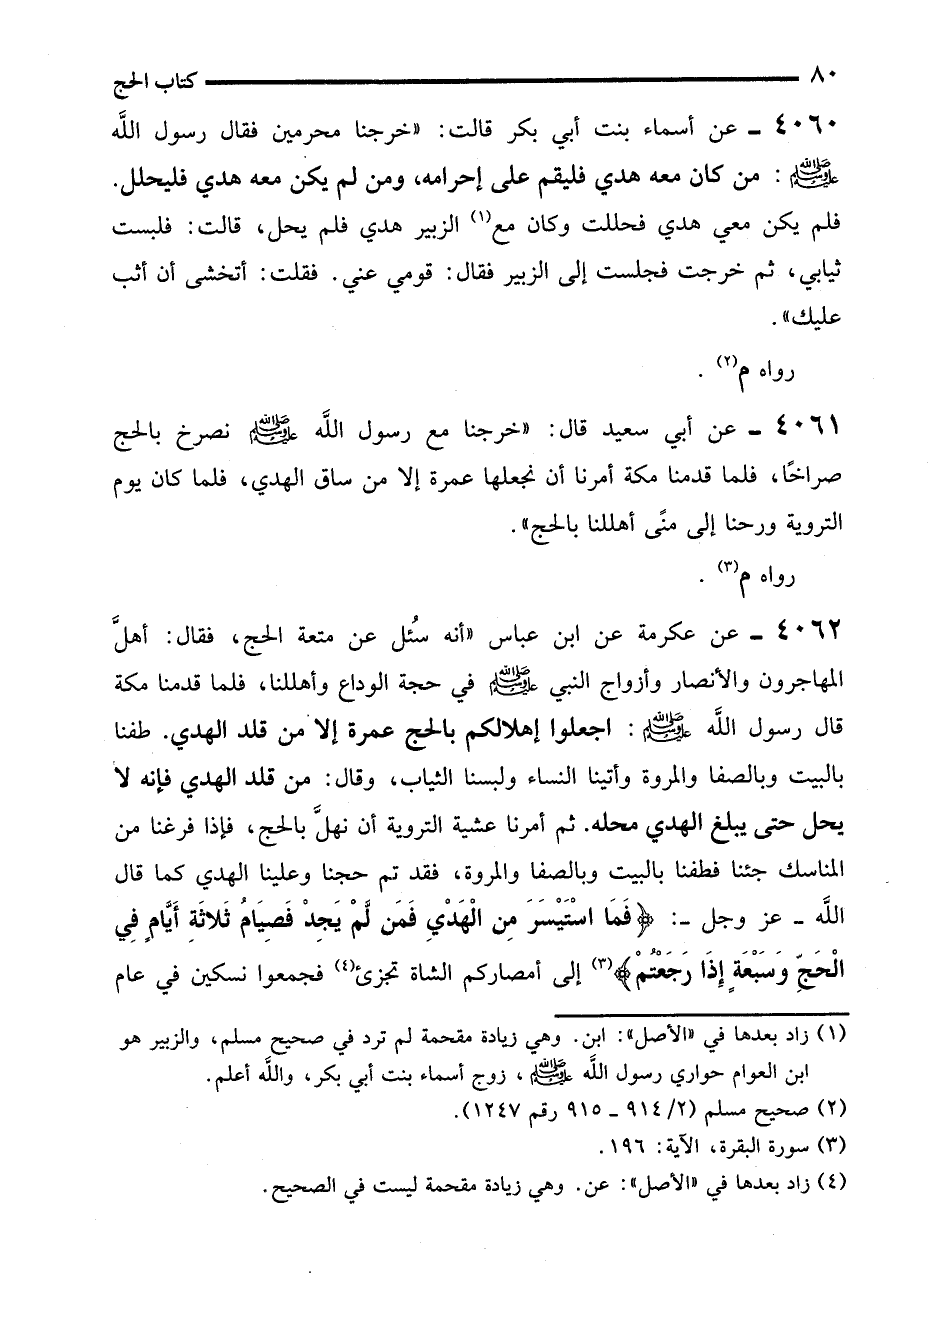 ٨٠ كتاب الحج
٤٠٦٠ ـ عن أسماء بنت أبي بكر قالت: «خرجنا محرمين فقال رسول اللَّه
ﷺ : من كان معه هدي فليقم على إحرامه، ومن لم يكن معه هدي فليحلل.
فلم يكن معي هدي فحللت وكان مع(١) الزبير هدي فلم يحل، قالت: فلبست
ثيابي، ثم خرجت فجلست إلى الزبير فقال: قومي عني. فقلت: أتخشى أن أثب
عليك».
رواه م(٢) .
٤٠٦١ ـ عن أبي سعيد قال: «خرجنا مع رسول اللَّه ﷺ نصرخ بالحج
صراخًا، فلما قدمنا مكة أمرنا أن نجعلها عمرة إلا من ساق الهدي، فلما كان يوم
التروية ورحنا إلى منًى أهللنا بالحج».
رواه م(٣) .
٤٠٦٢ ـ عن عكرمة عن ابن عباس «أنه سُئل عن متعة الحج، فقال: أهلَّ
المهاجرون والأنصار وأزواج النبي ﷺ في حجة الوداع وأهللنا، فلما قدمنا مكة
قال رسول اللَّه ﷺ : اجعلوا إهلالكم بالحج عمرة إلا من قلد الهدي. طفنا
بالبيت وبالصفا والمروة وأتينا النساء ولبسنا الثياب، وقال: من قلد الهدي فإنه لا
يحل حتى يبلغ الهدي محله. ثم أمرنا عشية التروية أن نهلَّ بالحج، فإذا فرغنا من
المناسك جئنا فطفنا بالبيت وبالصفا والمروة، فقد تم حجنا وعلينا الهدي كما قال
اللَّه ـ عز وجل ـ: ﴿فَمَا اسْتَيْسَرَ مِنَ الْهَدْيِ فَمَن لَّمْ يَجِدْ فَصِيَامُ ثَلاثَةِ أَيَّامٍ فِي
الْحَجِّ وَسَبْعَةٍ إِذَا رَجَعْتُمْ﴾(٣) إلى أمصاركم الشاة تجزئ(٤) فجمعوا نسكين في عام
(١) زاد بعدها في «الأصل»: ابن. وهي زيادة مقحمة لم ترد في صحيح مسلم، والزبير هو
ابن العوام حواري رسول اللَّه ﷺ ، زوج أسماء بنت أبي بكر، واللَّه أعلم.
(٢) صحيح مسلم (٢/ ٩١٤ ـ ٩١٥ رقم ١٢٤٧).
(٣) سورة البقرة، الآية: ١٩٦.
(٤) زاد بعدها في «الأصل»: عن. وهي زيادة مقحمة ليست في الصحيح.